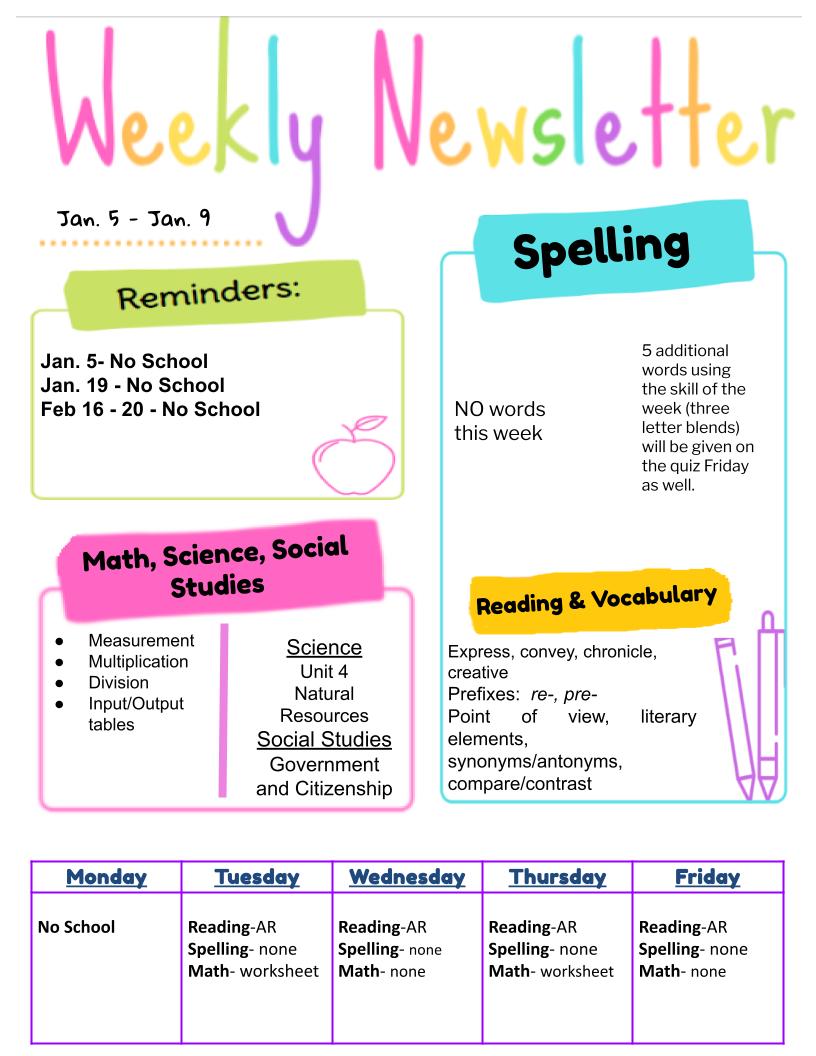 Weekly Newsletter
Jan. 5 - Jan. 9
Reminders:
Jan. 5- No School
Jan. 19 - No School
Feb 16 - 20 - No School
Spelling
NO words
this week
5 additional
words using
the skill of the
week (three
letter blends)
will be given on
the quiz Friday
as well.
Math, Science, Social
Studies
● Measurement
● Multiplication
● Division
● Input/Output
tables
Science
Unit 4
Natural
Resources
Social Studies
Government
and Citizenship
Reading & Vocabulary
Express, convey, chronicle,
creative
Prefixes: re-, pre-
Point of view, literary
elements,
synonyms/antonyms,
compare/contrast
Monday
No School
Tuesday
Reading-AR
Spelling- none
Math- worksheet
Wednesday
Reading-AR
Spelling- none
Math- none
Thursday
Reading-AR
Spelling- none
Math- worksheet
Friday
Reading-AR
Spelling- none
Math- none